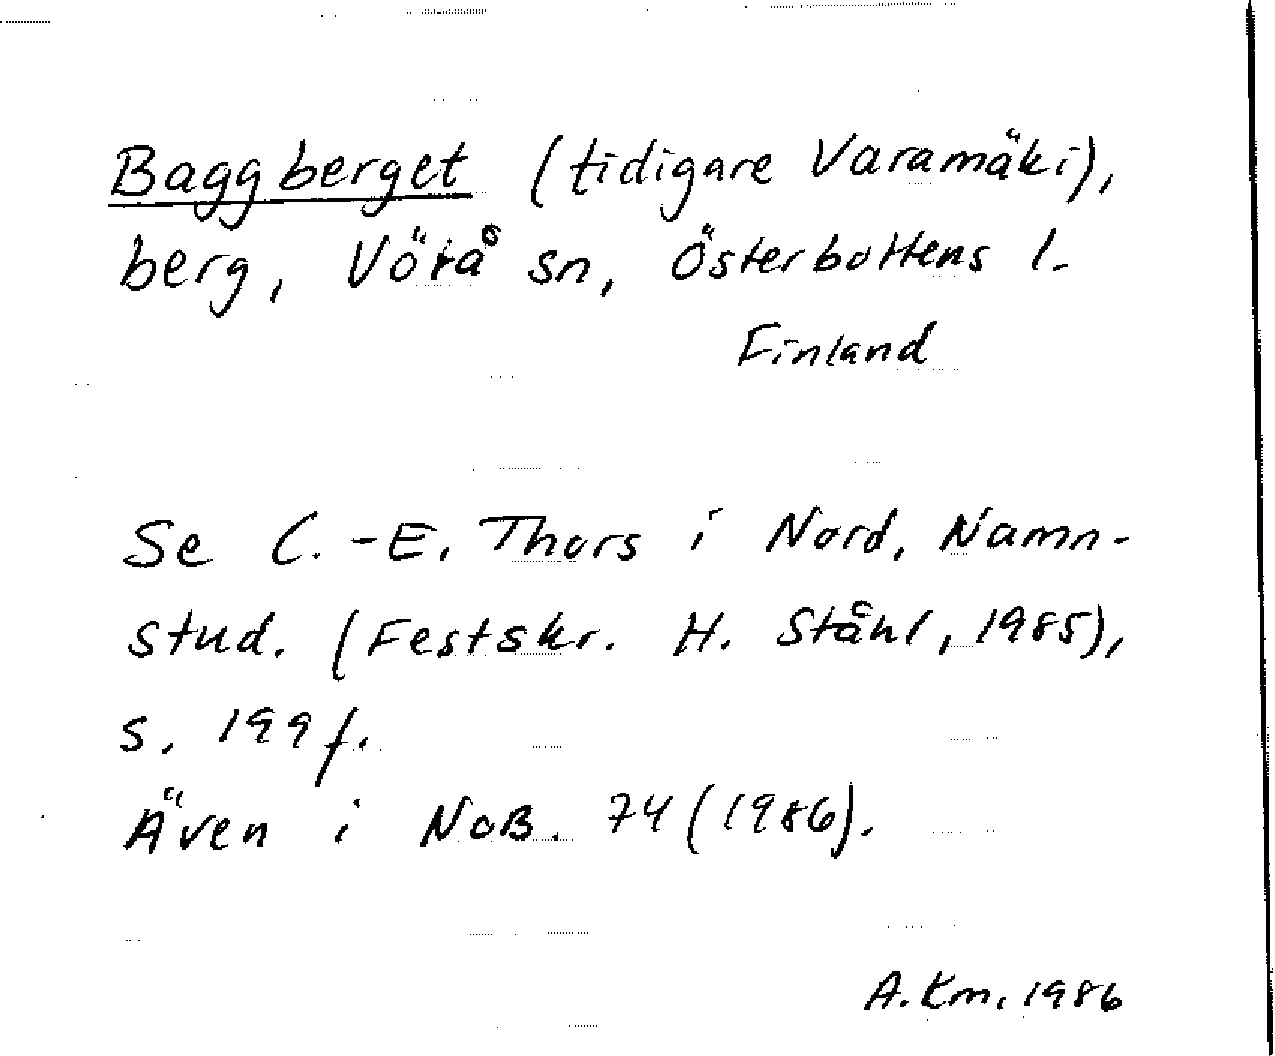 Baggberget (tidigare Varamäki),
berg, Vörå sn, Österbottens l.
Finland
Se C.-E. Thors i Nord. Namn-
stud. (Festskr. H. Ståhl, 1985),
s. 199 f.
Även i NoB. 74 (1986).
A.Km. 1986